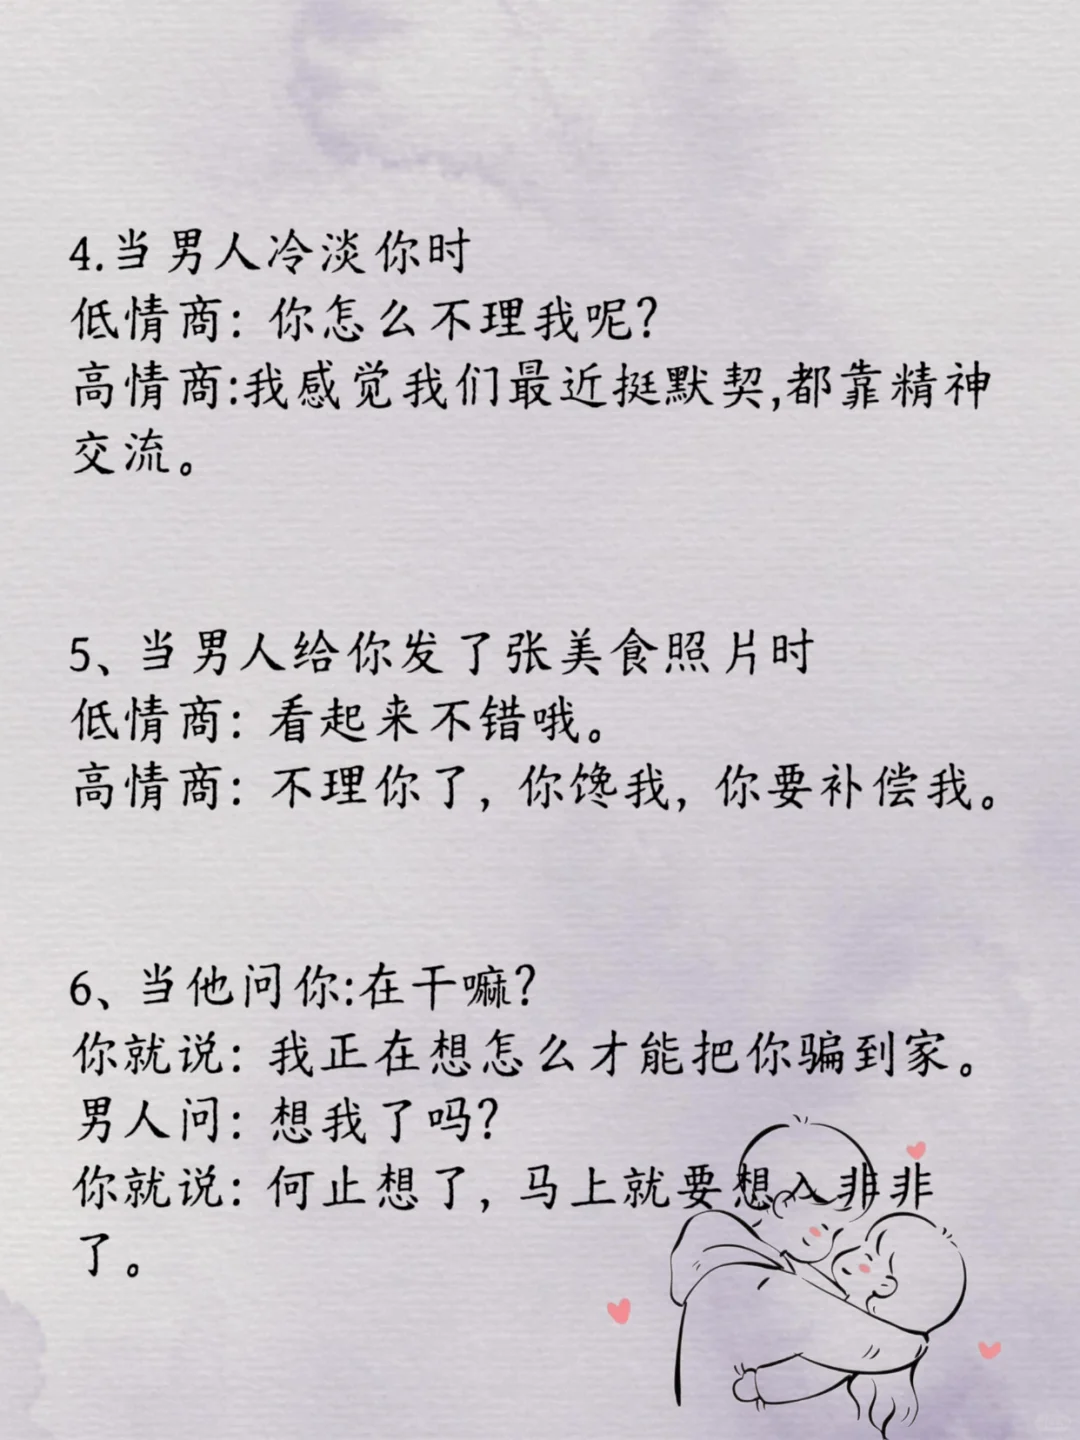 4.当男人冷淡你时
低情商：你怎么不理我呢？
高情商:我感觉我们最近挺默契,都靠精神
交流。
5、当男人给你发了张美食照片时
低情商：看起来不错哦。
高情商：不理你了，你馋我，你要补偿我。
6、当他问你:在干嘛？
你就说：我正在想怎么才能把你骗到家。
男人问：想我了吗？
你就说：何止想了，马上就要想入非非
了。